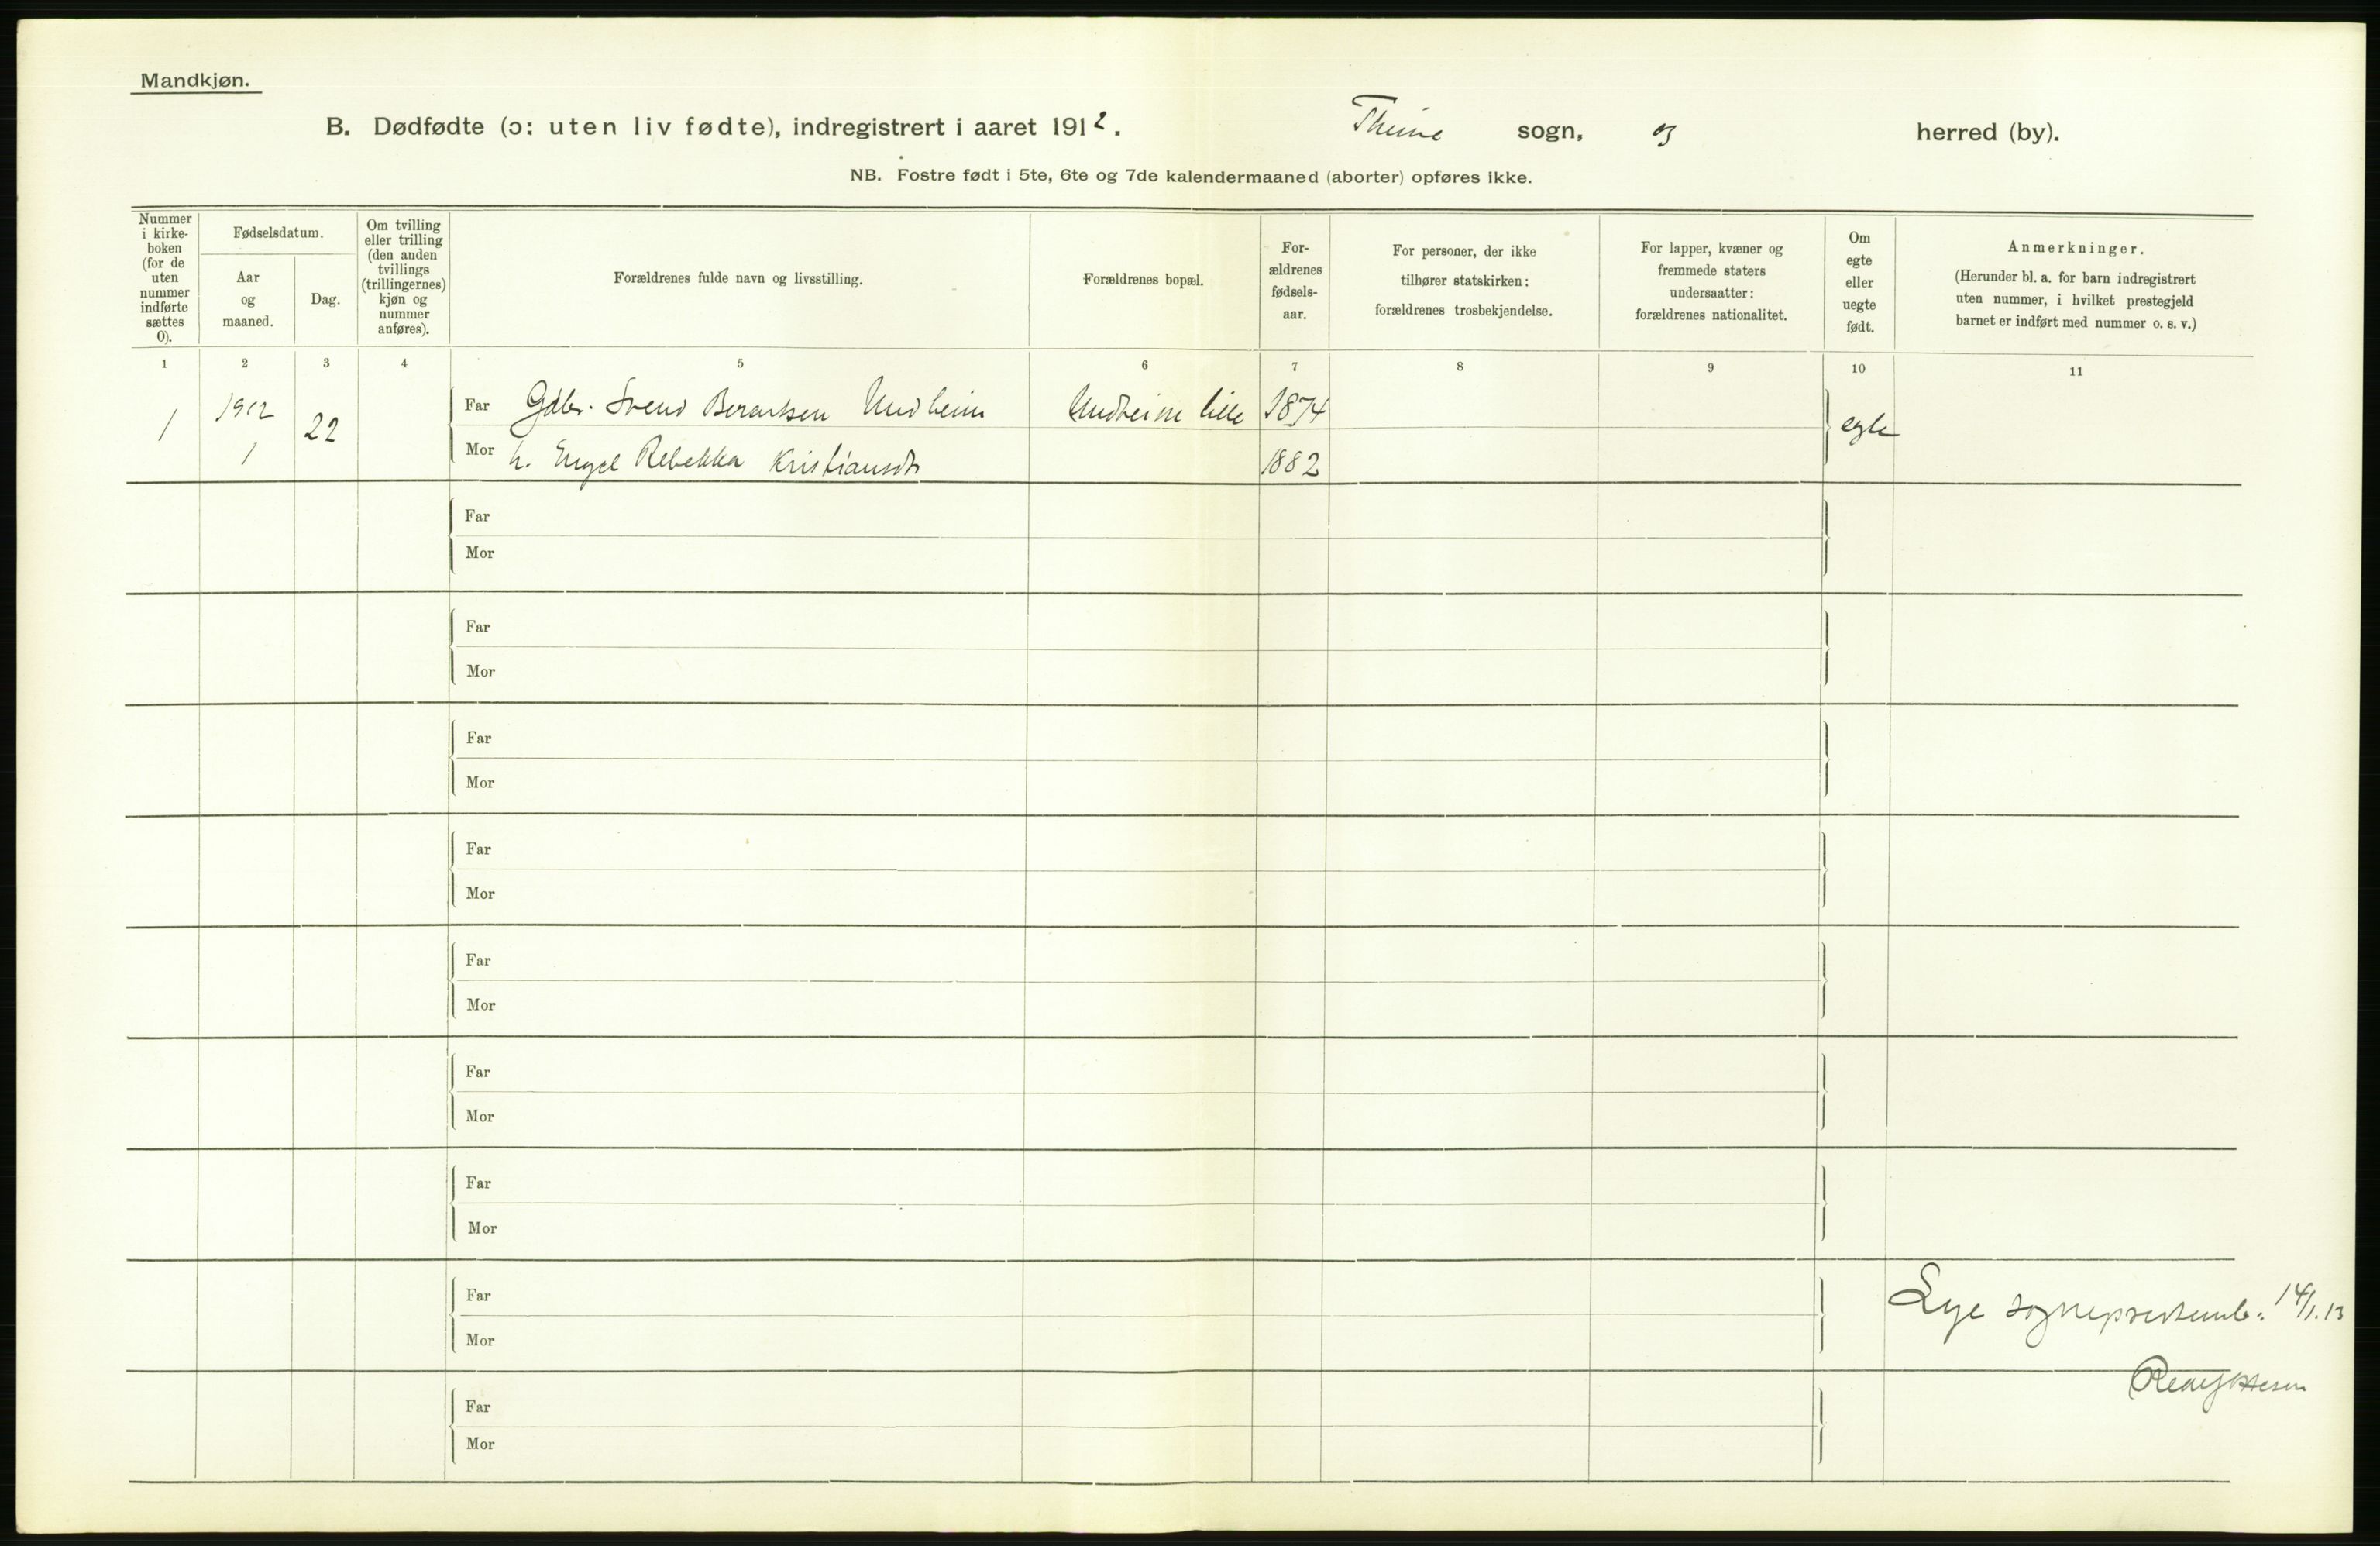 Mandkjøn.
B. Dødfødte (ɔ: uten liv fødte), indregistrert i aaret 1912. Thime sogn, og herred (by).
NB. Fostre født i 5te, 6te og 7de kalendermaaned (aborter) opføres ikke.
Nummer
i kirke-
boken
(for de
uten
nummer
indførte
sættes
0).
Fødselsdatum.
Aar
og
maaned.
Dag.
Om tvilling
eller trilling
(den anden
tvillings
(trillingernes)
kjøn og
nummer
anføres).
Forældrenes fulde navn og livsstilling.
Forældrenes bopæl.
For-
ældrenes
fødsels-
aar.
For personer, der ikke
tilhører statskirken:
forældrenes trosbekjendelse.
For lapper, kvæner og
fremmede staters
undersaatter:
forældrenes nationalitet.
Om
egte
eller
uegte
født.
Anmerkninger.
(Herunder bl. a. for barn indregistrert
uten nummer, i hvilket prestegjeld
barnet er indført med nummer o. s. v.)
1 2 3 4 5 6 7 8 9 10 11
1 1912 22 Far Gdbr. Svend Undheim Undheim lille 1874 egte
1 Mor h. Engel Rebekka Kristiansdt 1882
Far
Mor
Far
Mor
Far
Mor
Far
Mor
Far
Mor
Far
Mor
Far
Mor
Far
Lye sogneprestemb. 14/1.13
Mor
Far
Mor